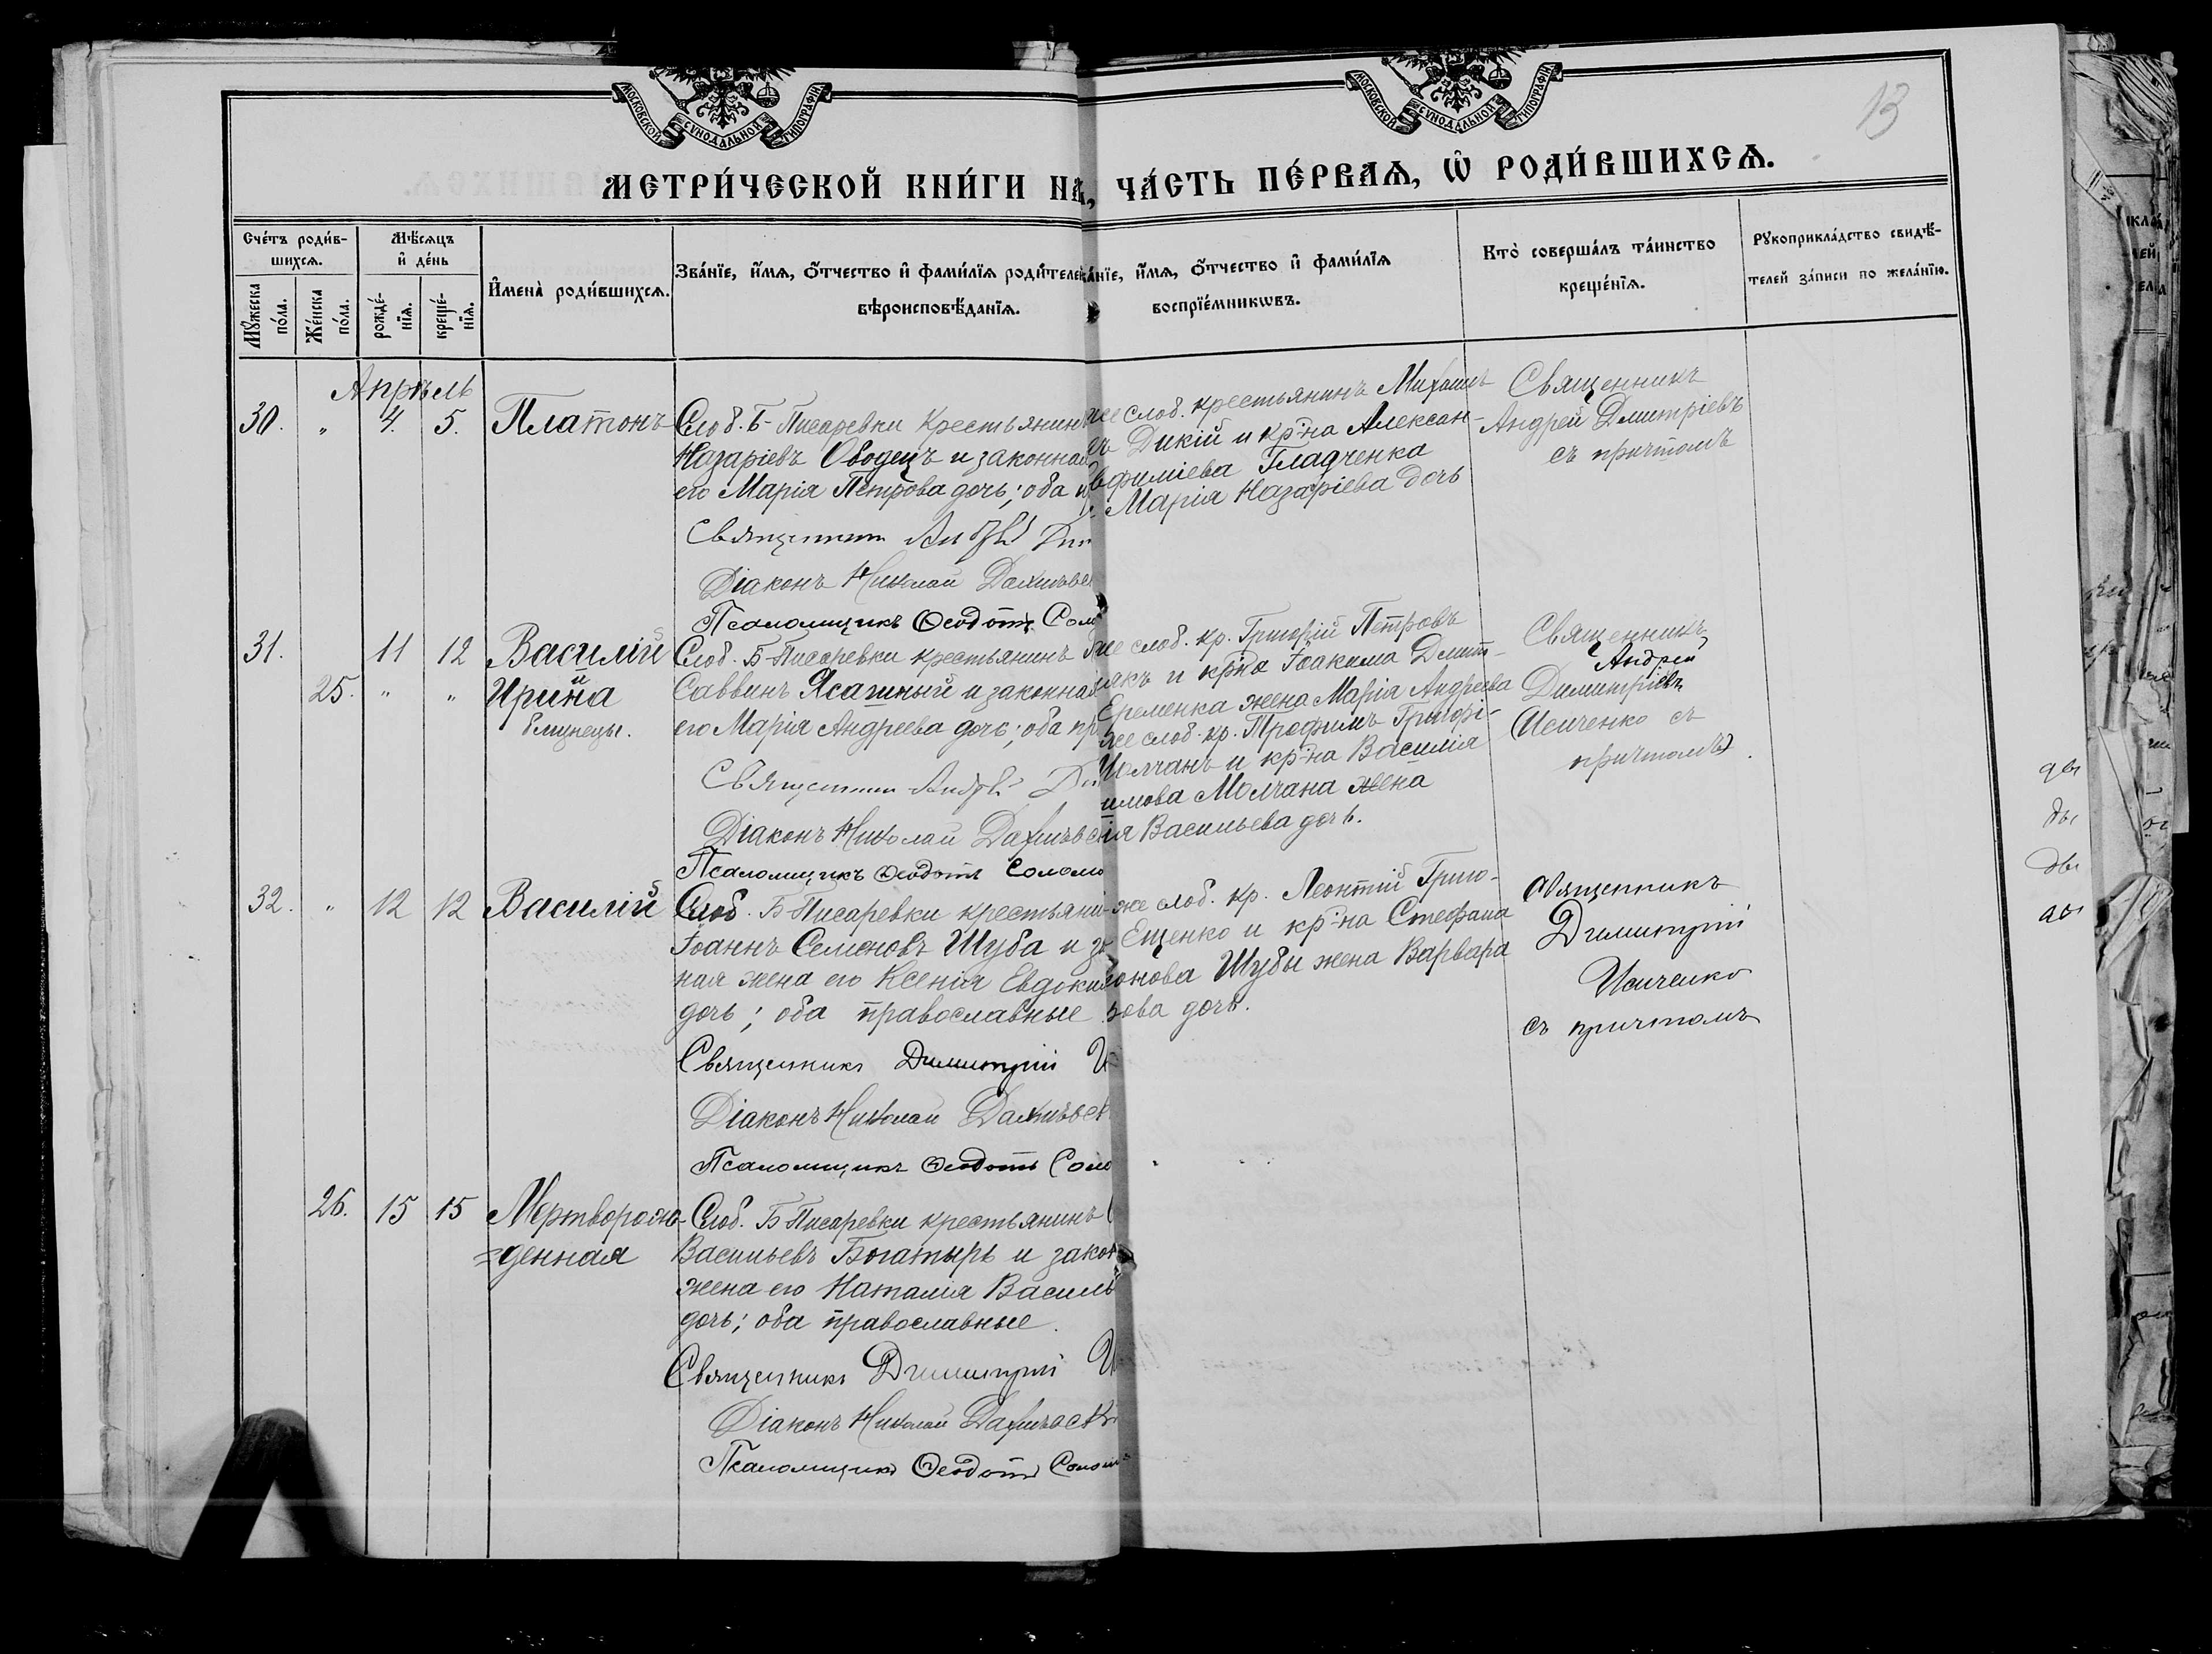 МОСКОВСКОЙ СѴНОДАЛЬНОЙ ТИПОГРАФІИ
МОСКОВСКОЙ СѴНОДАЛЬНОЙ ТИПОГРАФІИ
13
МЕТРИ́ЧЕСКОЙ КНИ́ГИ НА, ЧА́СТЬ ПЕ́РВАѦ, Ѡ РОДИ́ВШИХСѦ.
Сче́тъ роди́в-
шихсѧ.
Мꙋ́жеска по́ла.
Же́нска по́ла.
Мѣ́сѧцъ
и҆ де́нь
рожде́-
нїѧ.
креще́-
нїѧ.
И҆мена̀ роди́вшихсѧ.
Зва́нїе, и҆́мѧ, ѻ҆́тчество и҆ фами́лїѧ роди́телей
вѣроисповѣ́данїѧ.
ва́нїе, и҆́мѧ, ѻ҆́тчество и҆ фами́лїѧ
воспрїе́мникѡвъ.
Кто̀ соверша́лъ та́инство
креще́нїѧ.
Рꙋкоприкла́дство свидѣ́-
телей за́писи по жела́нїю.
Апрѣль
30. " 4. 5. Платонъ
Слоб. Б-Писаревки крестьянин
Назаріевъ Ободецъ и законная
его Марія Петрова дочь; оба
Священник
Діаконъ Николай
Псаломщикъ Ѳеодотъ
же слоб. крестьянинъ Михаилъ
Дикій и кр-на Алексан-
Гладченка
Марія Назаріева дочь
Священникъ
Андрей Дмитріевъ
съ причтомъ
31. 11 12 Василій
25. " " и Ирина
близнецы.
Слоб. Б-Писаревки крестьянинъ
Саввинъ Ясашный и законная
его Марія Андреева дочь; оба пр
Священник
Діаконъ Николай
Псаломщикъ Ѳеодотъ
же слоб. кр. Григорій Петровъ
якъ и кр-на Іоакима Дмит-
Еременка жена Марія Андреева
же слоб. кр. Трофимъ Григорі-
Молчанъ и кр-на Василія
имова Молчана жена
ія Васильева дочь.
Священникъ
Андрей
Димитріевъ
съ
причтомъ
32. " 12 12 Василій
Слоб. Б-Писаревки крестьяни-
Іоаннъ Семеновъ Шуба и за
ная жена его Ксенія Евдоким
дочь; оба православные
Священникъ Димитрій
Діаконъ Николай
Псаломщикъ Ѳеодотъ
же слоб. кр. Леонтій Григо-
Ещенко и кр-на Стефана
онова Шубы жена Варвара
ова дочь.
Священникъ
Димитрій
съ причтомъ
26. 15 15 Мертворож-
=денная
Слоб. Б-Писаревки крестьянинъ
Васильевъ Богатырь и закон
жена его Наталія Василь
дочь; оба православные.
Священникъ Димитрій
Діаконъ Николай
Псаломщикъ Ѳеодотъ